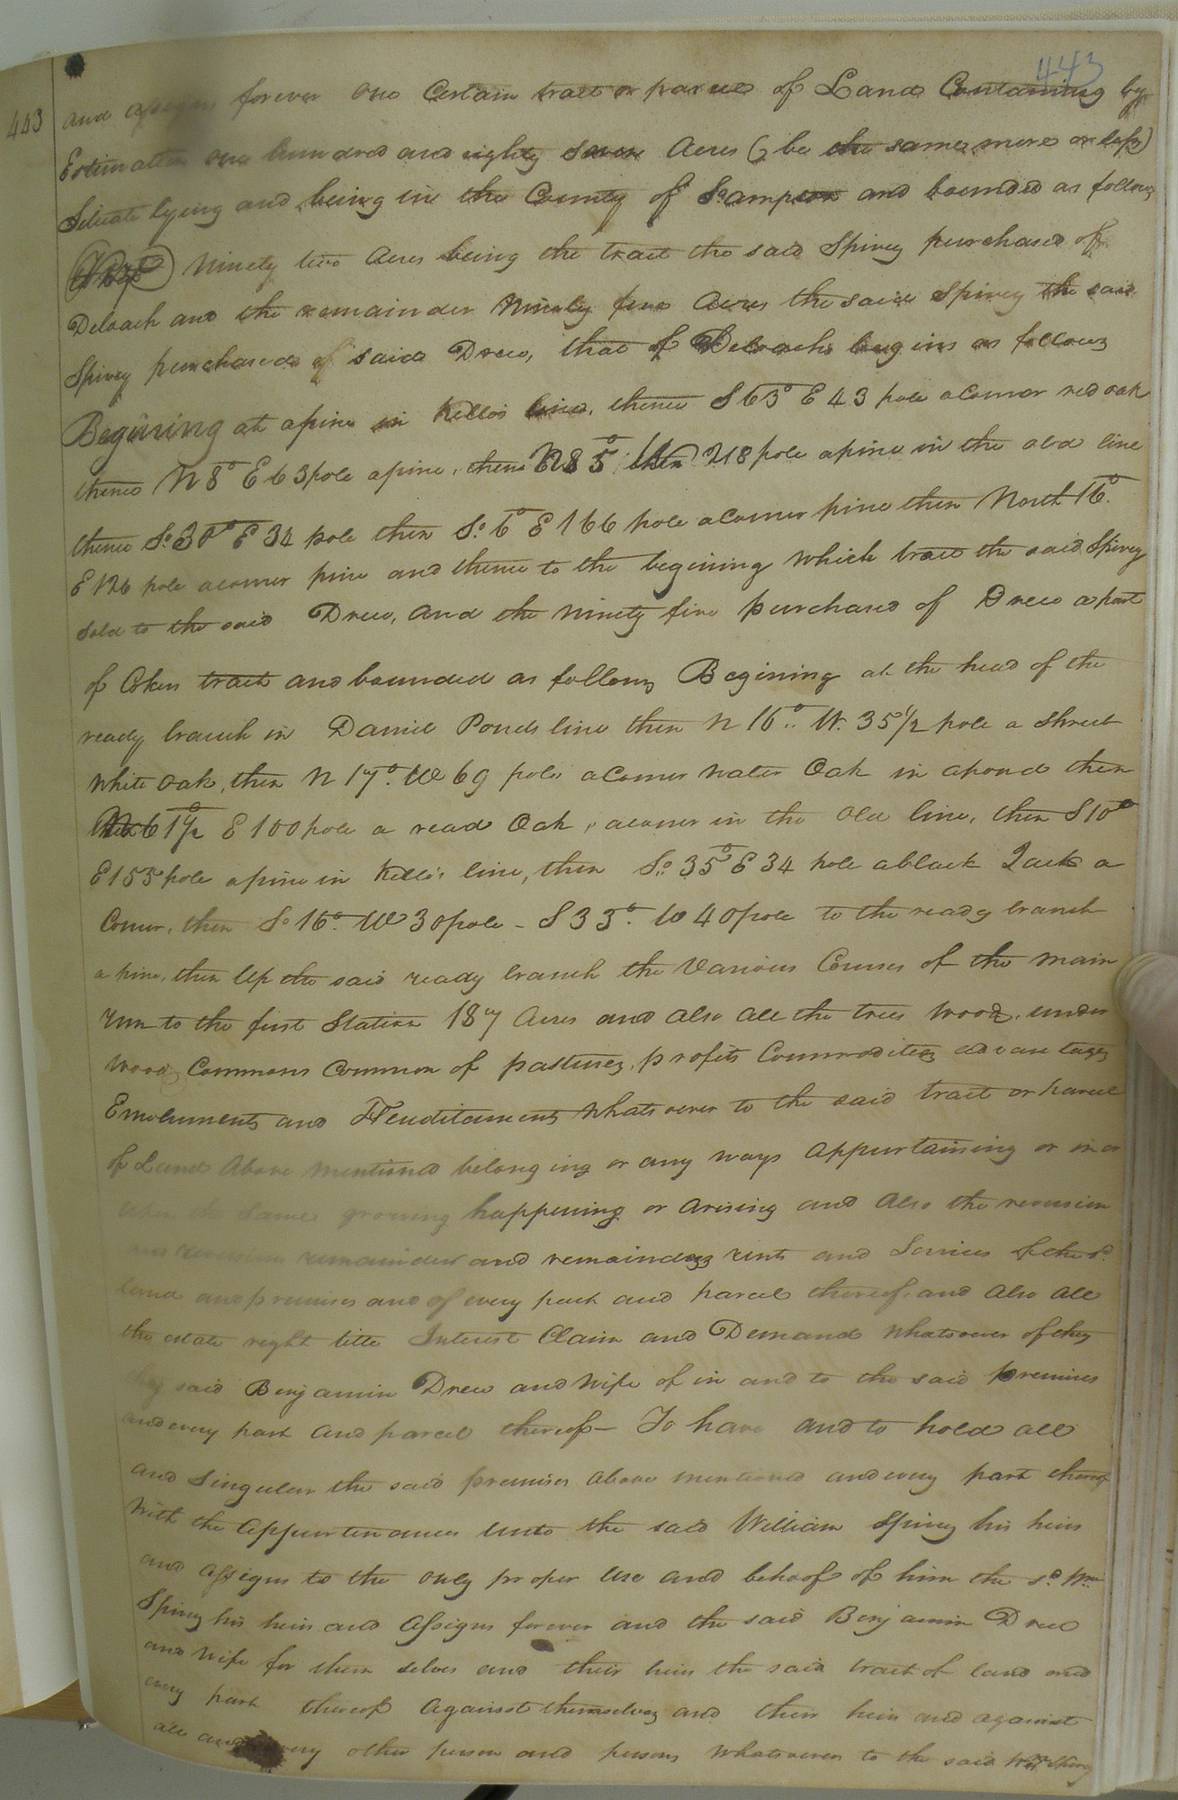 443
443
and assigns forever one Certain tract or parcel of Land Containing by
Estimation one hundred and eighty seven Acres (be the same more or less)
Situate lying and being in the County of Sampson and bounded as follows
Ninety two Acres being the tract the said Spivey purchased of
Deloach and the remainder Ninety five Acres the said Spivey the said
Spivey purchased of said Drew, that of Deloachs begins as follows
Begining at a pine in Kello's line, thence S 63° E 43 pole a Corner red oak
thence N 8° E 63 pole a pine, thence N 85° 218 pole a pine in the old line
thence So. 30° E 34 pole then So. 6° E 166 pole a Corner pine then North 16°
E 126 pole a corner pine and thence to the begining which tract the said Spivey
sold to the said Drew, and the ninety five purchased of Drew a part
of tract and bounded as follows Begining at the head of the
ready branch in Daniel Ponds line then N 16° W. 35 1/2 pole a Shrub
White oak, then N 17° W 69 poles a Corner Water Oak in a pond then
61 1/2° E 100 pole a read Oak, a corner in the Old line, then S 10°
E 155 pole a pine in Kello's line, then So. 35° E 34 pole a black Jack a
Corner, then So 16° W 30 pole - S 33° W 40 pole to the ready branch
a pine, then Up the said ready branch the Various Courses of the main
run to the first Station 187 Acres and also all the trees Wood, under
wood Commons Common of pastures, profits Commodities advantages
Emoluments and Heriditaments Whatsoever to the said tract or parcel
of Land Above mentioned belonging or any ways appurtaining or in or
upon the Same growing happening or arising and Also the revesion
and revesions remainder and remainders rents and Services of the sd.
land and premises and of every part and parcel thereof, and Also All
the estate right title Interest Claim and Demand Whatsoever of they
they said Benjamin Drew and Wife of in and to the said premises
and every part and parcel thereof - To have and to hold all
and Singular the said premises above mentioned and every part thereof
With the Appurtenances Unto the said William Spivey his heirs
and Assigns to the only proper Use and behoof of him the sd. Wm.
Spivey his heirs and Assigns forever and the said Benjamin Drew
and Wife for them selves and their heirs the said tract of land and
every part thereof Against themselves and their heirs and against
all and every other person and persons Whatsoever to the said Wm. Spivey